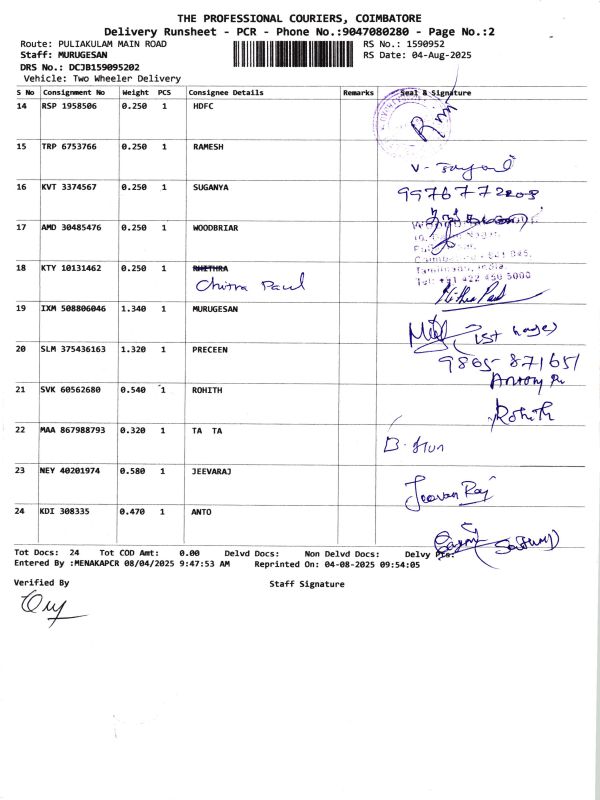 THE PROFESSIONAL COURIERS, COIMBATORE
Delivery Runsheet - PCR - Phone No.:9047080280 - Page No.:2
Route: PULIAKULAM MAIN ROAD RS No.: 1590952
Staff: MURUGESAN RS Date: 04-Aug-2025
DRS No.: DCJB159095202
Vehicle: Two Wheeler Delivery
S No Consignment No Weight PCS Consignee Details Remarks Seal & Signature
14 RSP 1958506 0.250 1 HDFC
15 TRP 6753766 0.250 1 RAMESH
16 KVT 3374567 0.250 1 SUGANYA
17 AMD 30485476 0.250 1 WOODBRIAR
18 KTY 10131462 0.250 1 RHITHRA
Chitra Paul
Tamilnadu, India.
Tel: +91 422 456 5000
19 IXM 508806046 1.340 1 MURUGESAN
20 SLM 375436163 1.320 1 PRECEEN
9865-871651
Antony
21 SVK 60562680 0.540 1 ROHITH
Rohith
22 MAA 867988793 0.320 1 TA TA
23 NEY 40201974 0.580 1 JEEVARAJ
Jeevan Raj
24 KDI 308335 0.470 1 ANTO
Tot Docs: 24 Tot COD Amt: 0.00 Delvd Docs: Non Delvd Docs: Delvy Pts:
Entered By :MENAKAPCR 08/04/2025 9:47:53 AM Reprinted On: 04-08-2025 09:54:05
Verified By Staff Signature